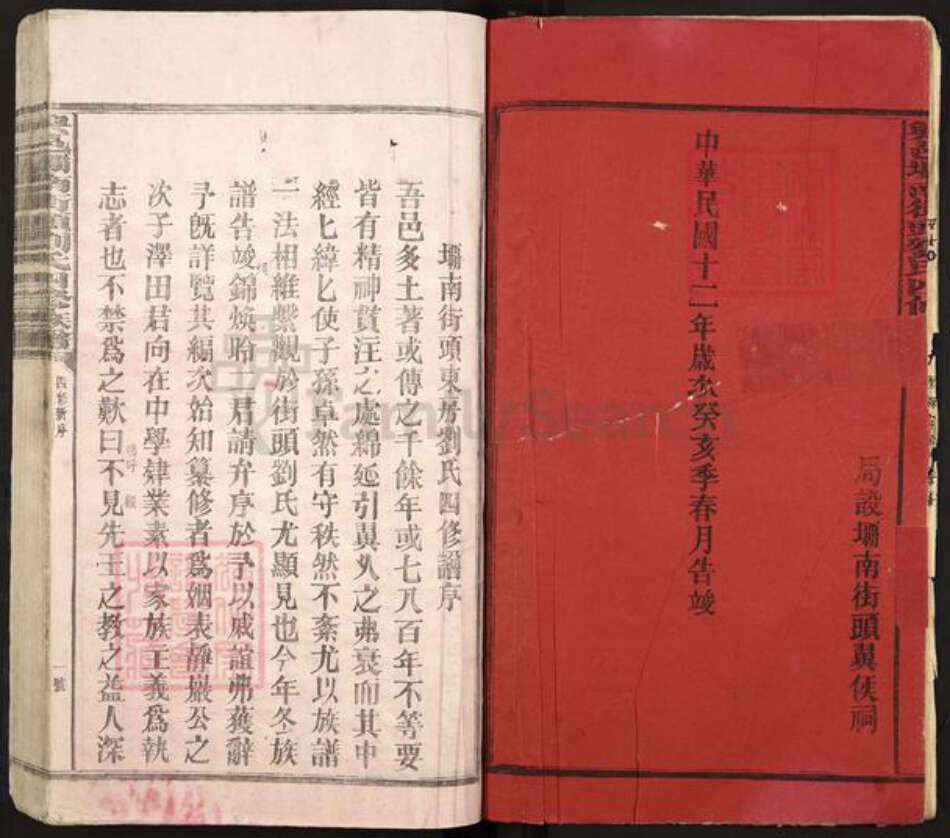 局設壩南街頭翼侯祠
中華民國十二年歲次癸亥季春月告竣
壩南街頭東房劉氏四修譜序
吾邑多土著或傳之千餘年或七八百年不等要
皆有精神貫注之處綿延引翼久之弗衰而其中
經匕緯匕使子孫卓然有守秩然不紊尤以族譜
一法相維繫觀於街頭劉氏尤顯見也今年冬族
譜告竣錦煥聆 君請弁序於予以戚誼弗獲辭
予既詳覽其編次始知纂修者為姻表靜嚴公之
次子澤田君向在中學肄業素以家族主義為執
志者也不禁為之歎曰不見先王之教之益人深
四修新序
一號
FamilySearch